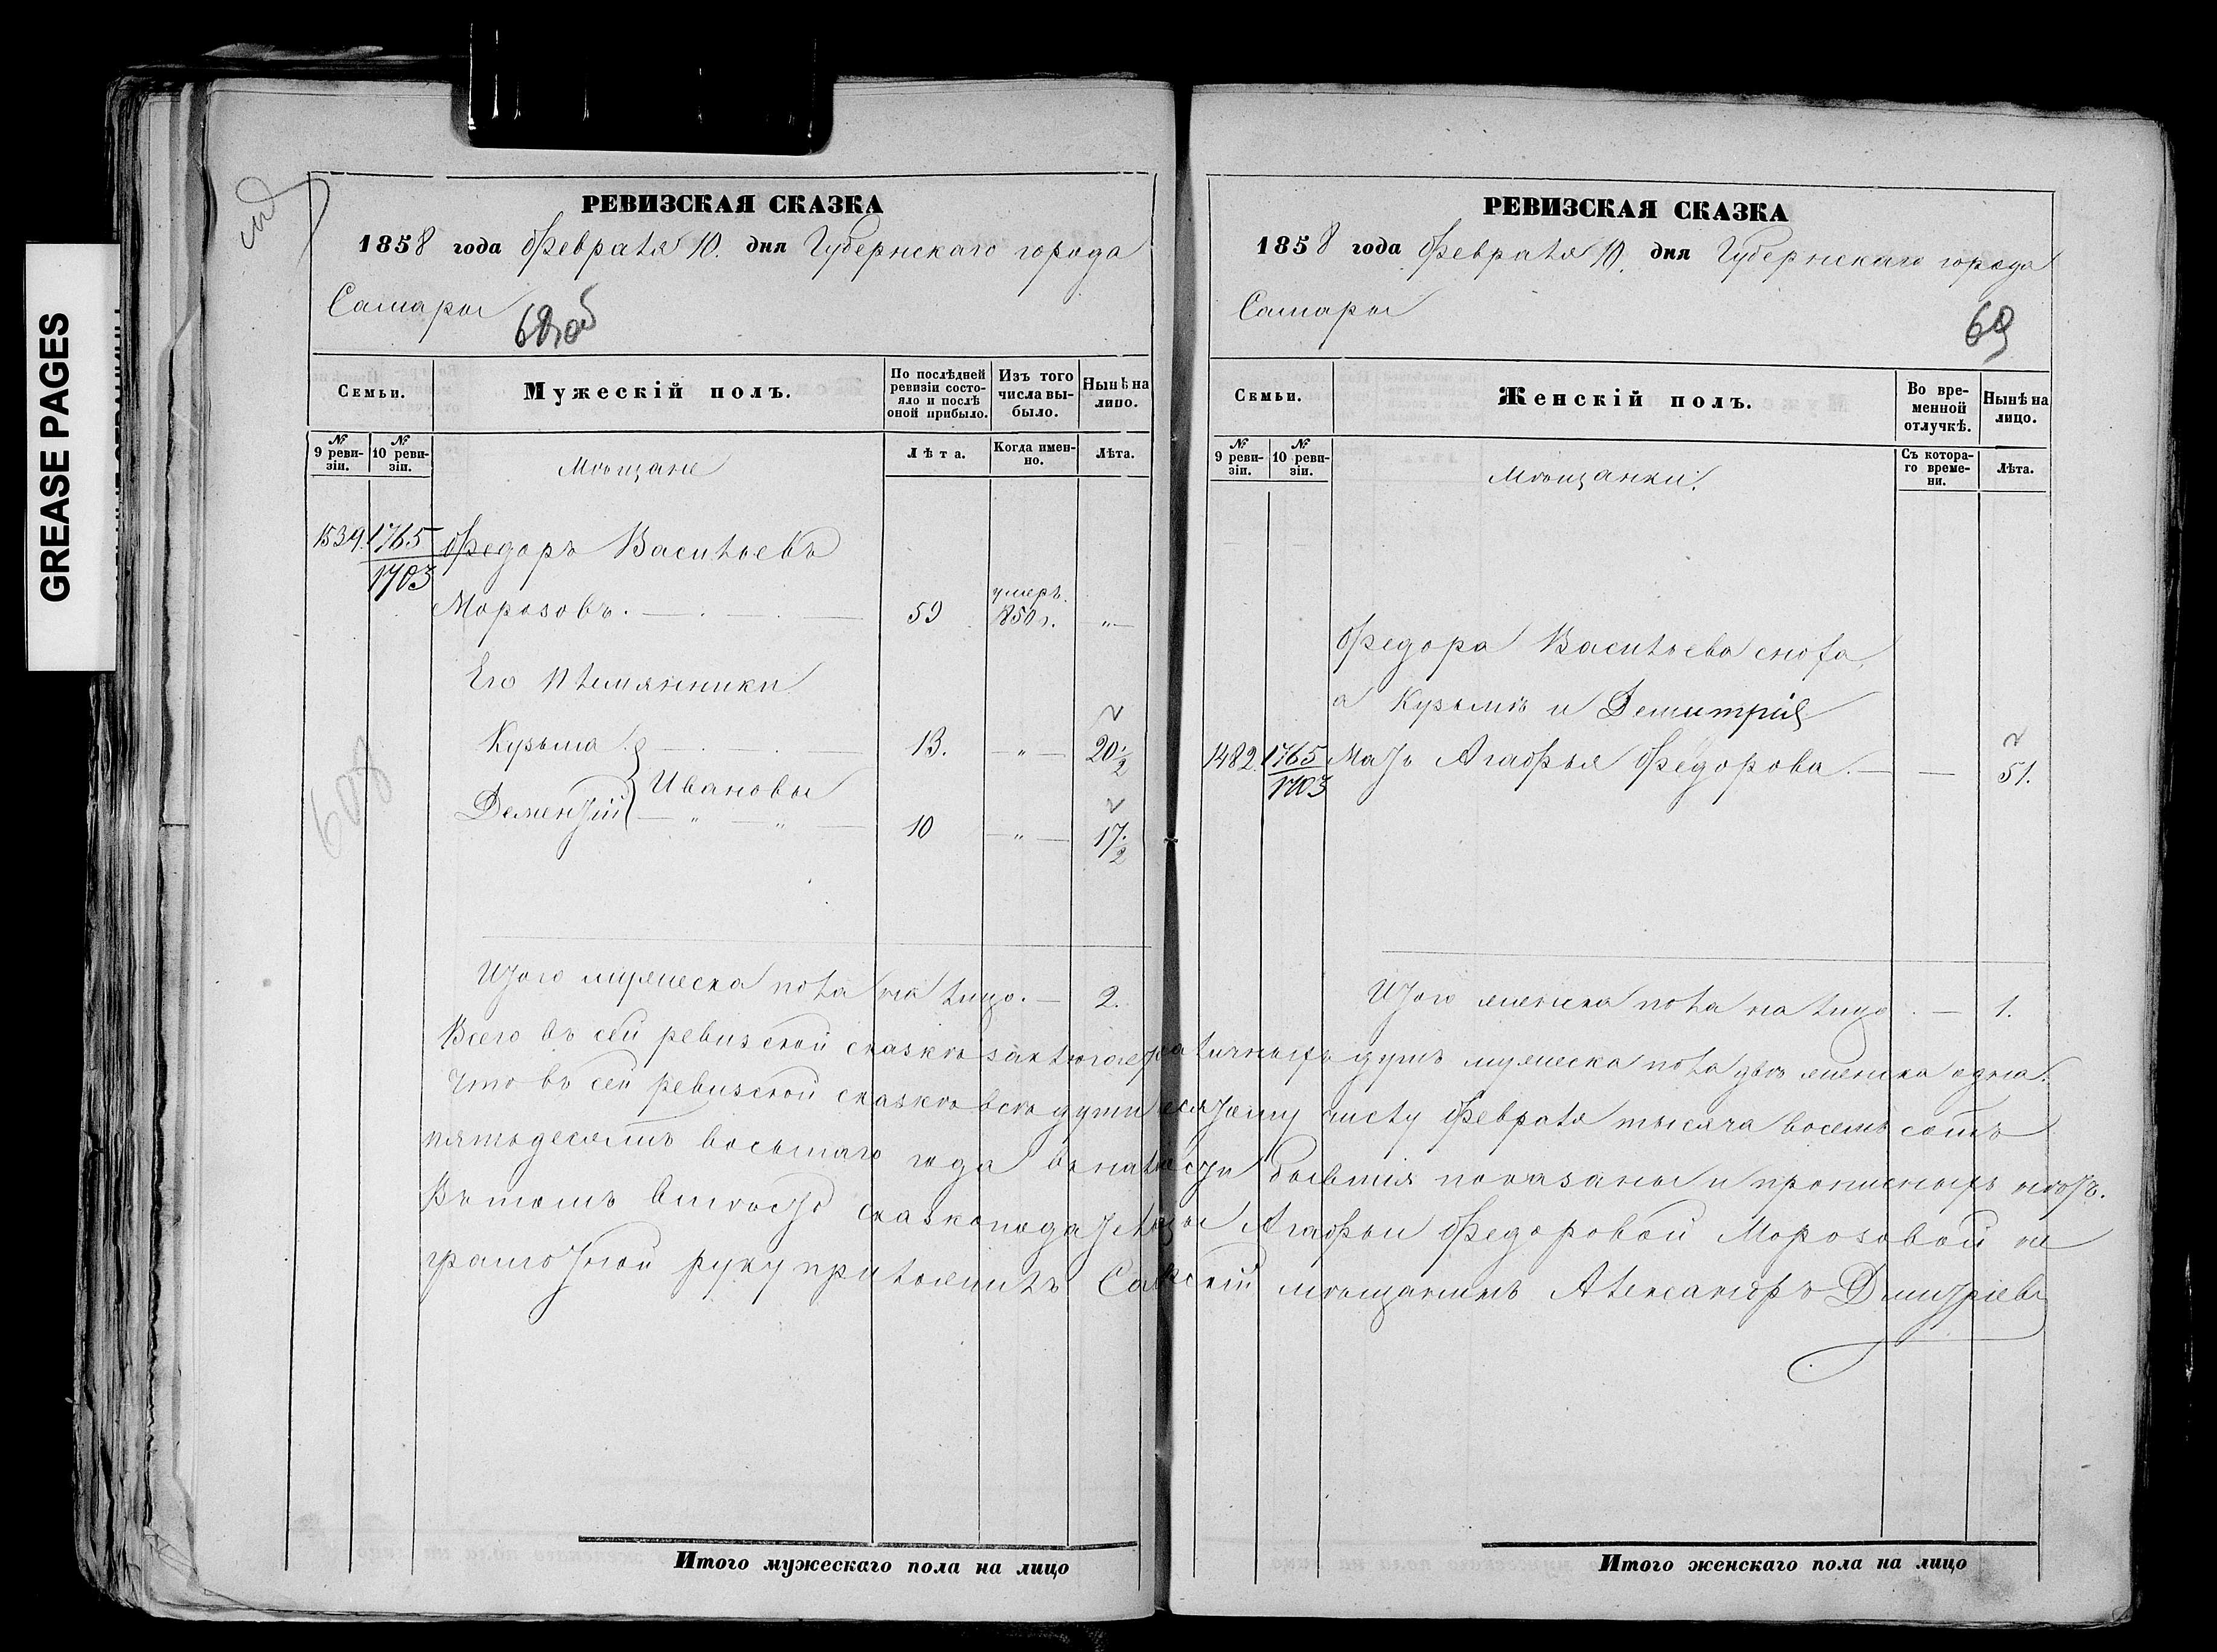 GREASE PAGES
РЕВИЗСКАЯ СКАЗКА
1858 года Февраля 10. дня Губернскаго города
Самары
68об
Семьи.
Мужескій полъ.
По послѣдней ревизіи состояло и послѣ оной прибыло.
Изъ того числа выбыло.
Нынѣ на лицо.
№ 9 ревизіи.
№ 10 ревизіи.
Мѣщане
Лѣта.
Когда именно.
Лѣта.
1539. 1765 Федоръ Васильевъ
1703
Морозовъ. 59 умеръ 1850 г. "
Его племянники
Кузьма 13. " 20 1/2
Ивановы
Дементій 10 " 17 1/2
608
Итого мужеска пола на лицо. — 2.
РЕВИЗСКАЯ СКАЗКА
1858 года Февраля 10. дня Губернскаго города
Самары
69
Семьи.
Женскій полъ.
Во временной отлучкѣ.
Нынѣ на лицо.
№ 9 ревизіи.
№ 10 ревизіи.
Мѣщанки.
Съ котораго времени.
Лѣта.
Федора Васильева сноха,
а Кузьмѣ и Дементрія
1482. 1765 Мать Агафья Федорова. — — 51.
1703
Итого женска пола на лицо. — 1.
Всего въ сей ревизской сказкѣ заключается наличныхъ душъ мужеска пола двѣ женска одна.
Что въ сей ревизской сказкѣ всѣ души къ числу Февраля тысяча восемь сотъ
пятьдесятъ восьмаго года въ наличности бывшія показаны и прописныхъ нѣтъ.
Въ томъ вмѣсто сказкоподательницы Агафьи Федоровой Морозовой не
грамотной руку приложилъ мѣщанинъ Александръ Дмитріевъ
Итого мужескаго пола на лицо
Итого женскаго пола на лицо